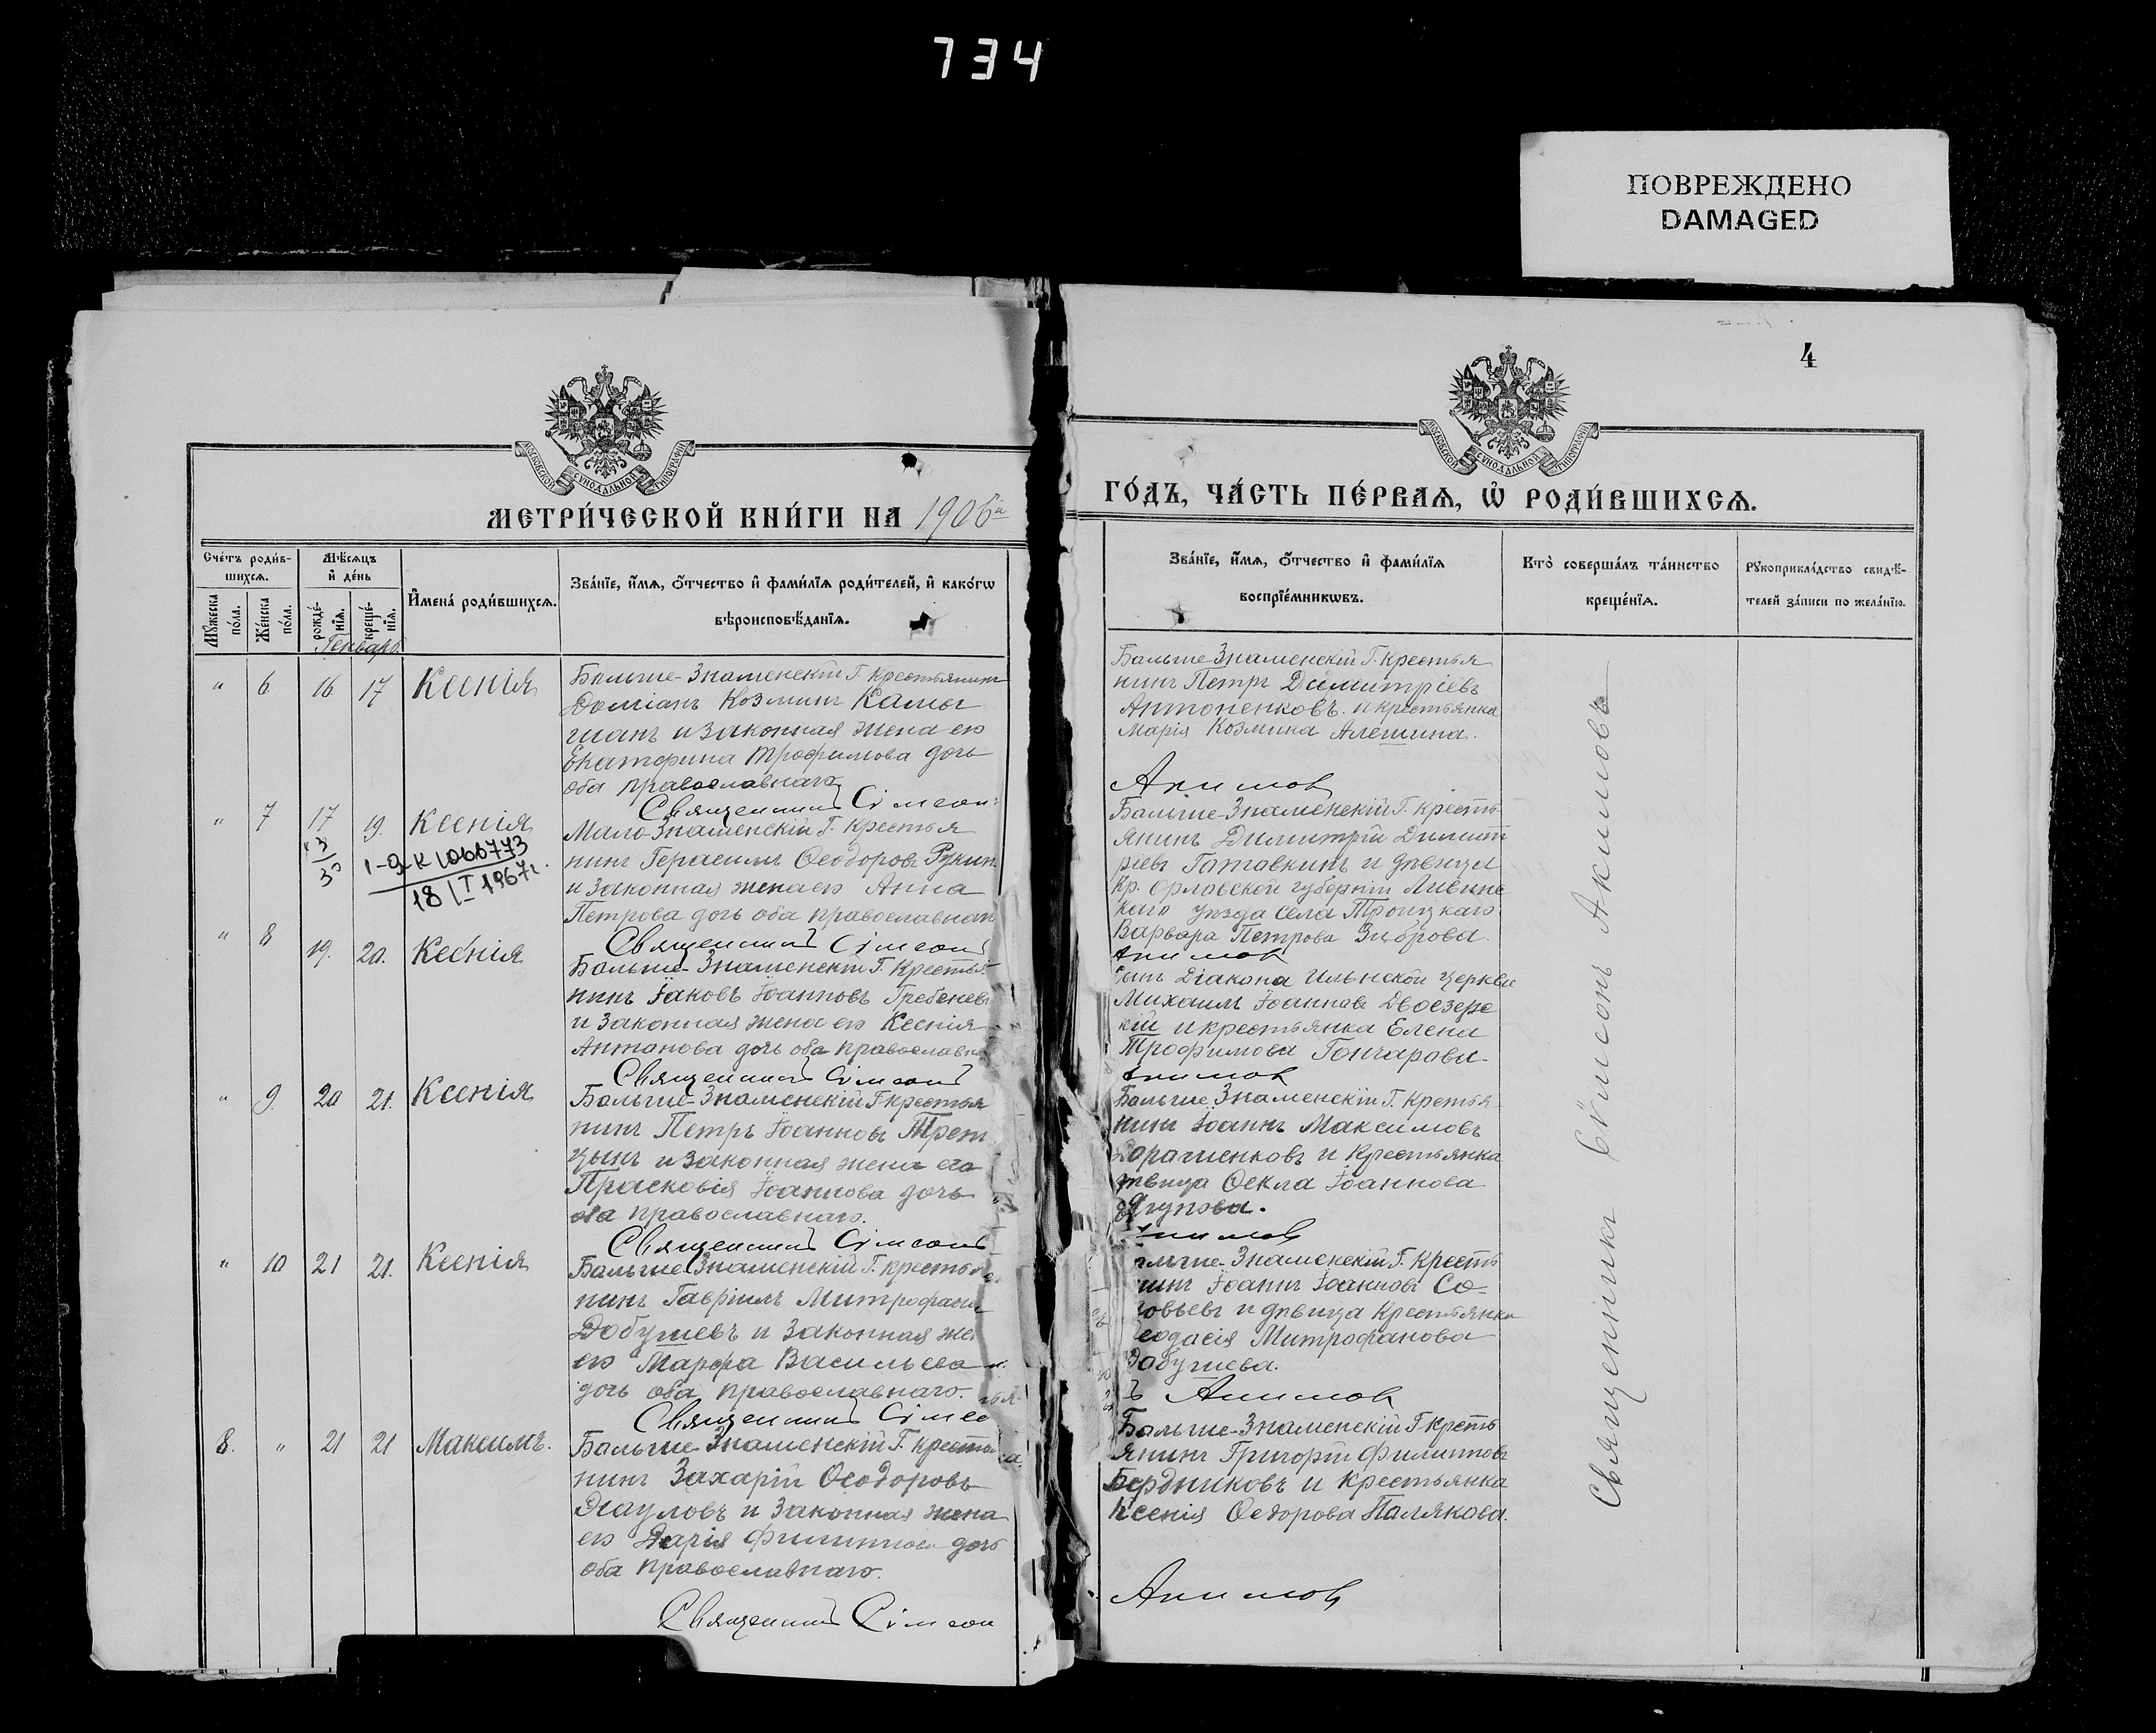 734
ПОВРЕЖДЕНО
DAMAGED
4
МОСКОВСКОЙ СѴНОДАЛЬНОЙ ТИПОГРАФІИ
МОСКОВСКОЙ СѴНОДАЛЬНОЙ ТИПОГРАФІИ
МЕТРИ́ЧЕСКОЙ КНИ́ГИ НА 1906й
ГО́ДЪ, ЧА́СТЬ ПЕ́РВАѦ, Ѡ҆ РОДИ́ВШИХСѦ.
Сче́тъ роди́в-
шихсѧ.
Мꙋ́жеска по́ла.
Же́нска по́ла.
Мѣ́сѧцъ
и҆ де́нь
рожде́-
нїѧ.
креще́-
нїѧ.
И҆мена̀ роди́вшихсѧ.
Зва́нїе, и҆́мѧ, ѻ҆́тчество и҆ фами́лїѧ роди́телей, и҆ како́гѡ
вѣроисповѣ́данїѧ.
Зва́нїе, и҆́мѧ, ѻ҆́тчество и҆ фами́лїѧ
воспрїе́мникѡвъ.
Кто̀ соверша́лъ та́инство
креще́нїѧ.
Рꙋкоприкла́дство свидѣ́-
телей за́писи по жела́нїю.
Генварь
" 6. 16. 17 Ксенія
Больше-Знаменскій Г. крестьянинъ
Доміанъ Козминъ Камы
шанъ и законная жена его
Екатерина Трофимова дочь
оба православнаго
Священникъ Сімеонъ
Больше Знаменскій Г. Крестья
нинъ Петръ Димитріевъ
Антоненковъ. и крестьянка
Марія Козмина Алешина.
Акимов
" 7 17 19. Ксенія
1-ЯК 1066773
18/I 1967г.
Мало-Знаменскій Г. Крестья
нинъ Герасимъ Ѳеодоровъ Рукин
и законная жена его Анна
Петрова дочь оба православнаго
Священникъ Сімеонъ
Больше-Знаменскій Г. Кресть
янинъ Димитрій Димит
ріевъ Гатавкинъ и дѣвица
Кр. Орловской губерніи Ливинс
каго уѣзда села Троицкаго
Варвара Петрова Зиброва.
Акимов
" 8 19. 20. Ксенія
Больше-Знаменскій Г. Крестья
нинъ Іаковъ Іоанновъ Гребеневъ
и законная жена его Ксенія
Антонова дочь оба православна
Священникъ Сімеонъ
сынъ Діакона Ильнской церкви
Михаилъ Іоанновъ Двоезерс
кій и крестьянка Елена
Трофимова Гончарова.
Акимов
" 9. 20 21. Ксенія
Больше-Знаменскій Г. крестья
нинъ Петръ Іоанновъ Трет
цынъ и законная жена его
Прасковія Іоаннова дочь
оба православнаго.
Священникъ Сімеонъ
Больше Знаменскій Г. Кретья
нинъ Іоаннъ Максимовъ
Дорошенковъ и Крестьянка
дѣвица Ѳекла Іоаннова
Ягупова.
" 10 21 21. Ксенія
Больше Знаменскій Г. крестья
нинъ Гавріилъ Митрофано
Добушевъ и законная же
его Марѳа Васильева
дочь оба православнаго.
Священникъ Сімео
льше-Знаменскій Г. Кресть
нинъ Іоаннъ Іоанновъ Со-
ловьевъ и дѣвица Крестьянка
еодосія Митрофанова
Добушева.
ъ Акимов
8. " 21 21 Максимъ.
Больше-Знаменскій Г. крестья
нинъ Захарій Ѳеодоровъ
Дгауловъ и законная жена
его Дарія Филиппова дочь
оба православнаго.
Священникъ Сімеон
Больше-Знаменскій Г. Кресть
янинъ Григорій Филиповъ
Бердниковъ и крестьянка
Ксенія Ѳедорова Полякова.
Акимов
Священникъ Сѵмеонъ Акимовъ